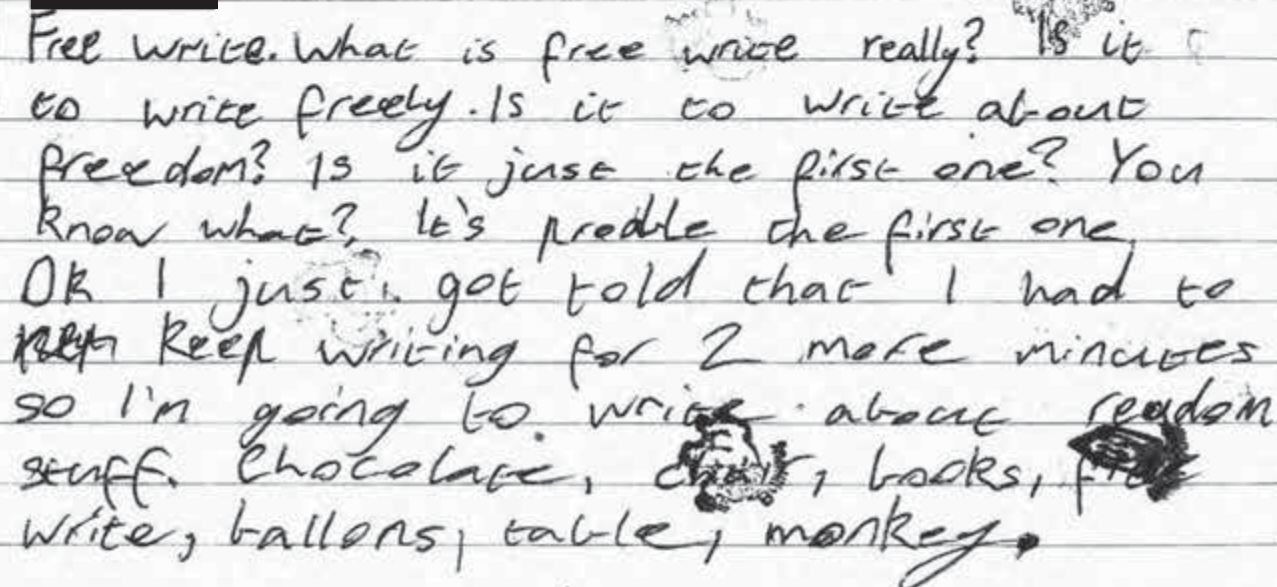 Free write. What is free write really? Is it
to write freely. Is it to write about
freedom? Is it just the first one? You
know what? It's predble the first one,
Ok I just got told that I had to
Keep writing for 2 more minutes
so I'm going to write about readom
stuff. Chocolate, chair, books, free
write, ballons, table, monkey.